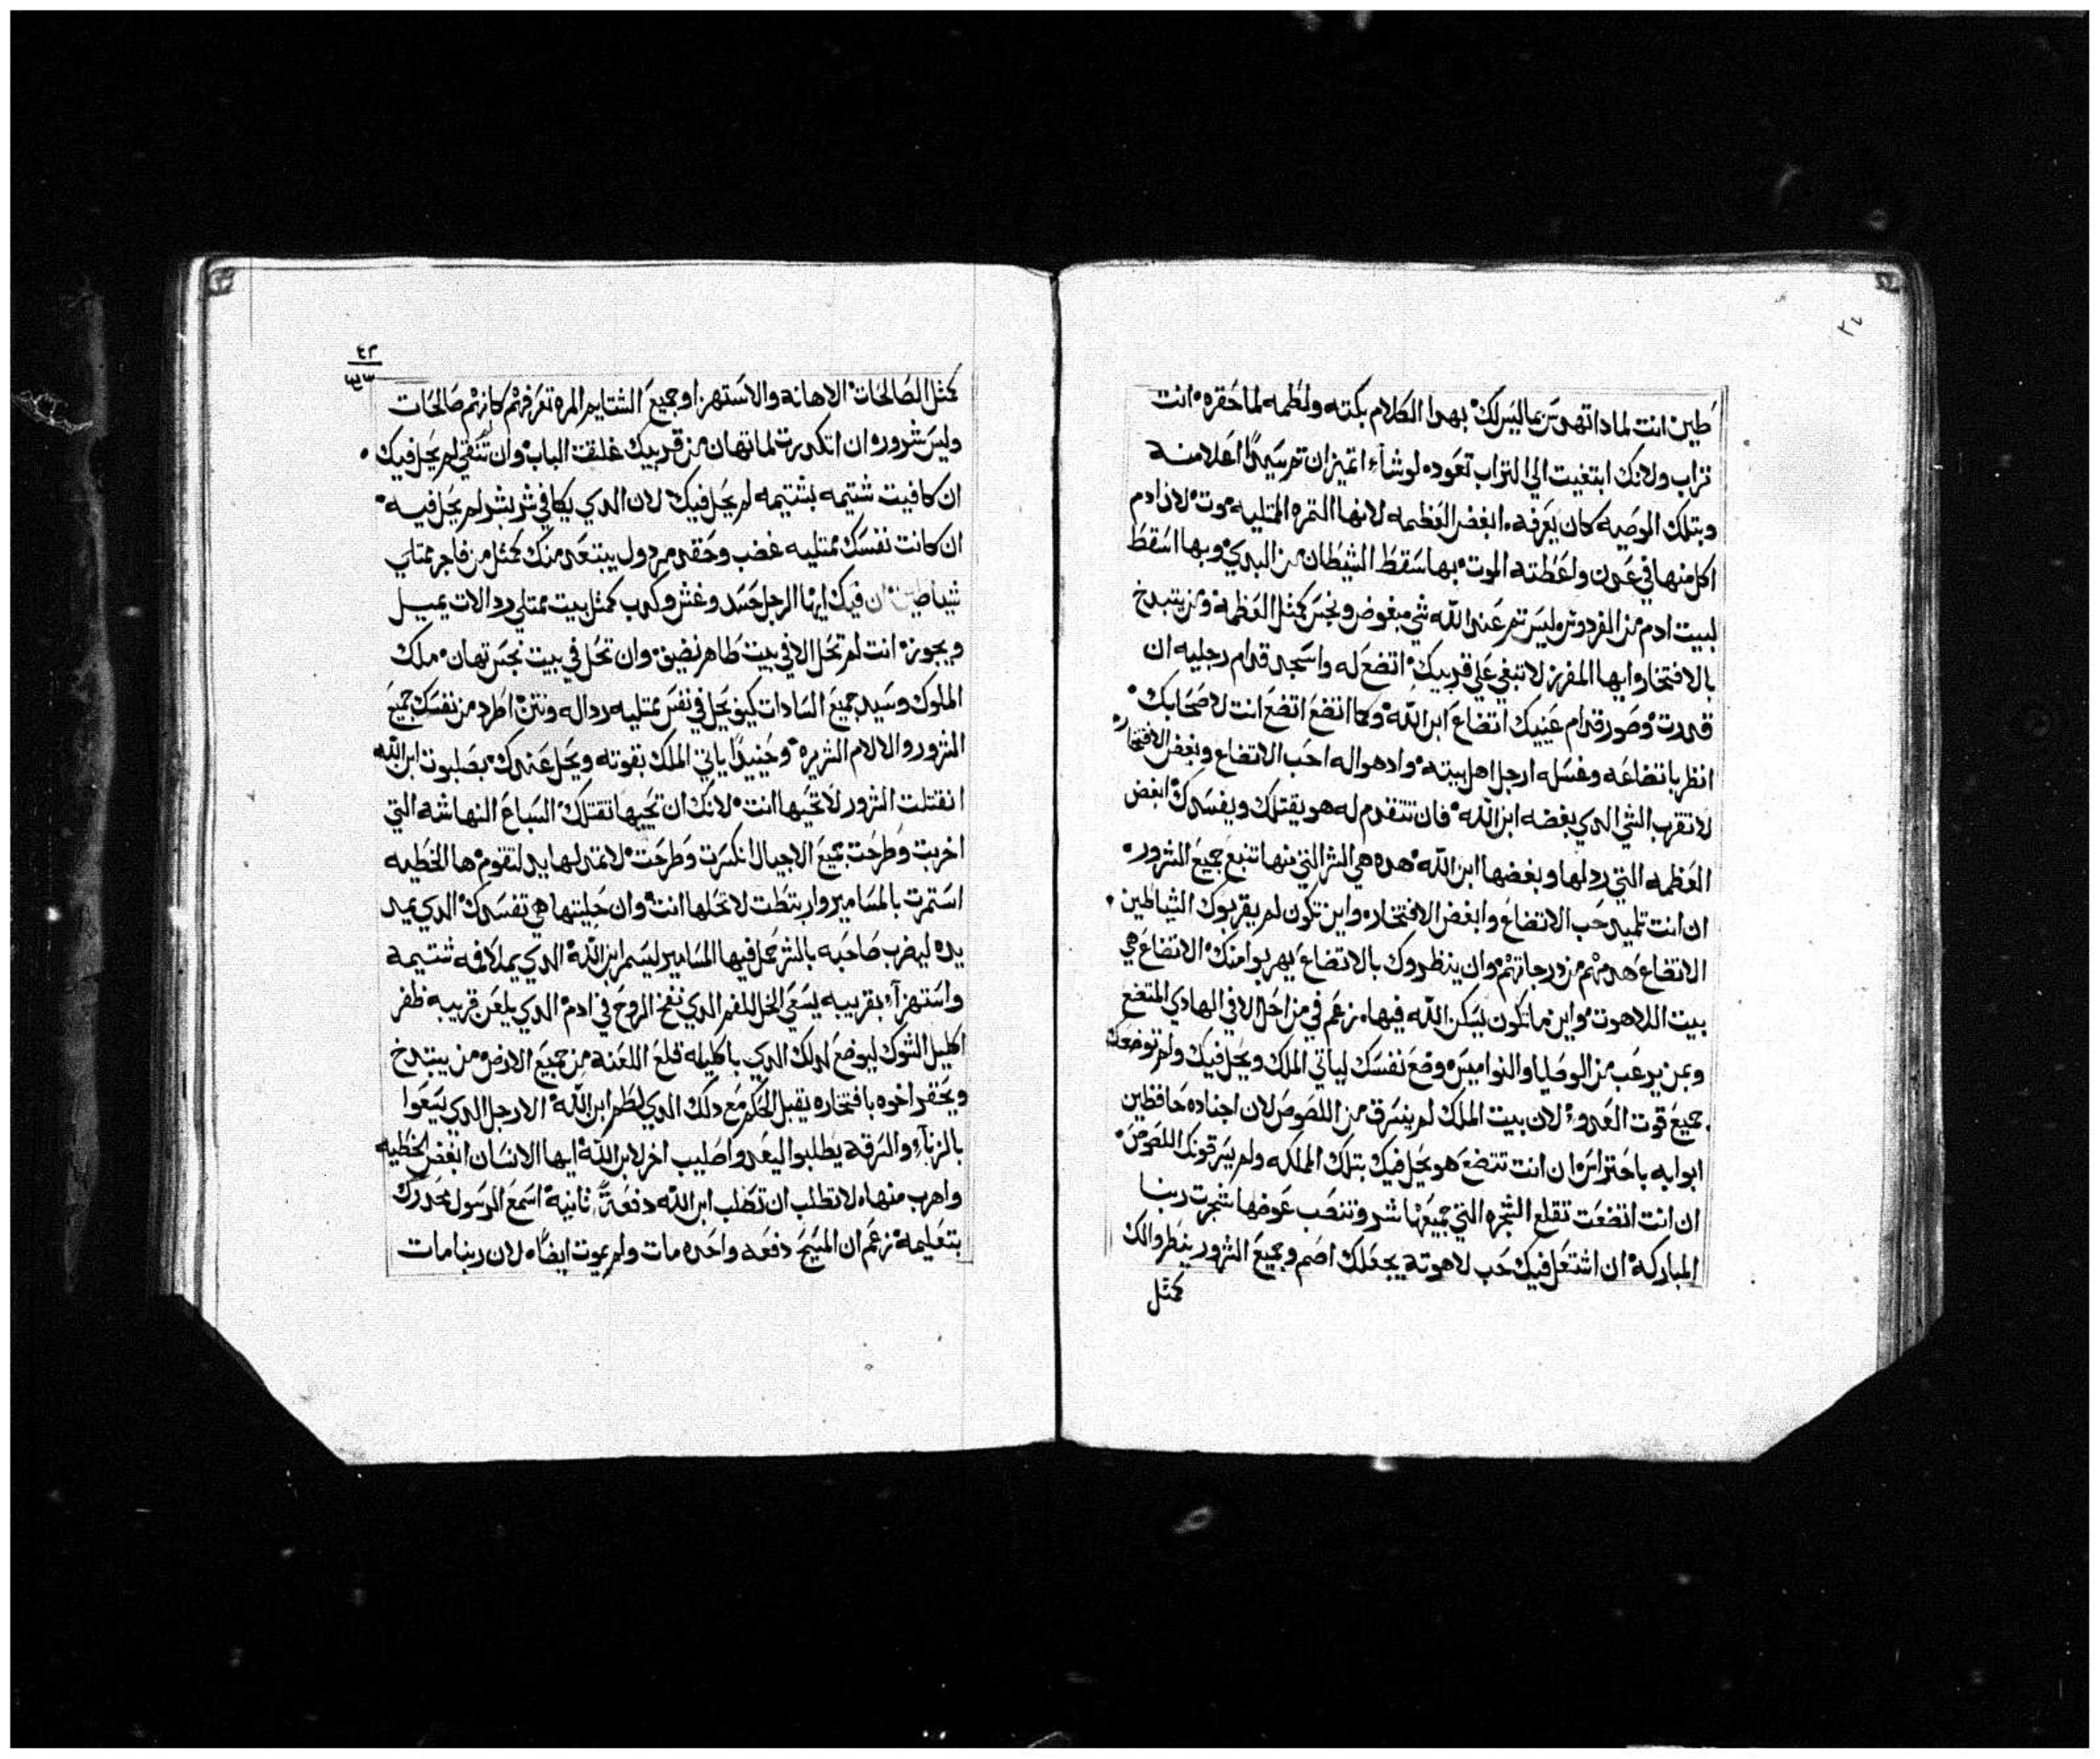 طين انت لمادا تهدس بما ليس لك بهدا الكلام بكته ولطمه لما حقره انت
تراب ولانك ابتغيت الي التراب تعوده لوشاء اتميزان تم سيدًا اعلا منه
وبتلك الوصيه كان يعرفه ابغض العظمه لانها التمره الممتليه موت لان ادم
اكل منها في عدن واعطته الموت بها سقط الشيطان من البدي وبها اسقط
لبيت ادم من الفردوس وليس تم عند الله شي مبغوض ونجس كمثل العظمة ومن يتبدخ
بالافتخار ايها المفرز لا تبغي علي قريبك اتضع له واسجد قدام رجليه ان
قدرت وصور قدام عينيك اتضاع ابن الله وكما اتضع اتضع انت لاصحابك
انظر باتضاعه وغسله ارجل اهل بيته وادهواله احب الاتضاع وبغض الافتخار
لا تقرب الشي الدي بغضه ابن الله فان تتقدم له هو يقتلك ويفسدك ابغض
العظمه التي ردلها وبغضها ابن الله هده هي البير التي منها تنبع جميع الشروره
ان انت تلميد حب الاتضاع وابغض الافتخاره واين تكون لم يقربوك الشياطين
الاتضاع هدمهم من درجاتهم وان ينظروك بالاتضاع يهربوا منك الاتضاع هي
بيت اللاهوت واين ما تكون يسكن الله فيها زعم في من احل الا في الهادي المتضع
وبمن يرعب من الوصايا والنواميس وضع نفسك لياتي الملك ويحل فيك ولم توضعك
جميع قوت العدو لان بيت الملك لم ينسرق من اللصوص لان اجناده حافظين
ابوابه باحتراس ان انت تتضع هو يحل فيك بتلك الملكه ولم يسرقونك اللصوص
ان انت اتضعت تقلع الشجره التي جميعها شر وتنصب عوضها شجرت ربنا
المباركة ان اشتعل فيك حب لاهوته يجعلك اصم وجميع الشرور ينظروا لك
كمثل
٤٢
كمثل الصالحات الاهانه والاستهزا وجميع الشتايم المره تعرفهم كانهم صالحات
وليس شروره ان اتكدرت لما تهان من قريبك غلقت الباب وان تتقي لم يحل فيك
ان كافيت شتيمه بشتيمه لم يحل فيك لان الدي يكافي شر بشر لم يحل فيه
ان كانت نفسك ممتليه غضب وحقد مردول يبتعد منك كمثل من فاجر ممتلي
شياطين ان فيك ايها الرجل حسد وغش وكدب كمثل بيت ممتلي ردالات يميل
ويجوزه انت لم تحل الا في بيت طاهر نضيق وان تحل في بيت نجس تهان ملك
الملوك وسيد جميع السادات كيف يحل في نفس ممتليه رداله ونتن اطرد من نفسك جميع
الشرور والالام الشريره وحينيدًا ياتي الملك بقوته ويحل عندك بصلبوت ابن الله
انقتلت الشرور لا تحييها انت لانك ان تحييها تقتلك السباع النهاشه التي
اخربت وطرحت جميع الاجيال انكسرت وطرحت لا تمد لها يد لتقوم ها الخطيه
استمرت بالمسامير واربتطت لا تحلها انت وان حليتها هي تفسدك الدي يمد
يده ليضرب صاحبه بالشر عمل فيها المسامير ليسمر ابن الله الدي يملا فمه شتيمه
واستهزاء بقريبه يسقي الخل للفم الدي نفخ الروح في ادم الدي يلعن قريبه ظفر
اكليل الشوك ليوضع لدلك الدي باكليله قلع اللعنه من جميع الارض من يبتدخ
ويحقر اخوه بافتخاره يقبل الحكم مع دلك الدي لطم ابن الله الارجل الدي يسعوا
بالزناء والسرقه يطلبوا ليعدوا صليب اخر لابن الله ايها الانسان ابغض الخطيه
واهرب منها ولا تطلب ان تصلب ابن الله دفعةً ثانية اسمع الرسول محدرك
بتعليمه زعم ان المسيح دفعه واحده مات ولم يموت ايضًا لان ربنا مات